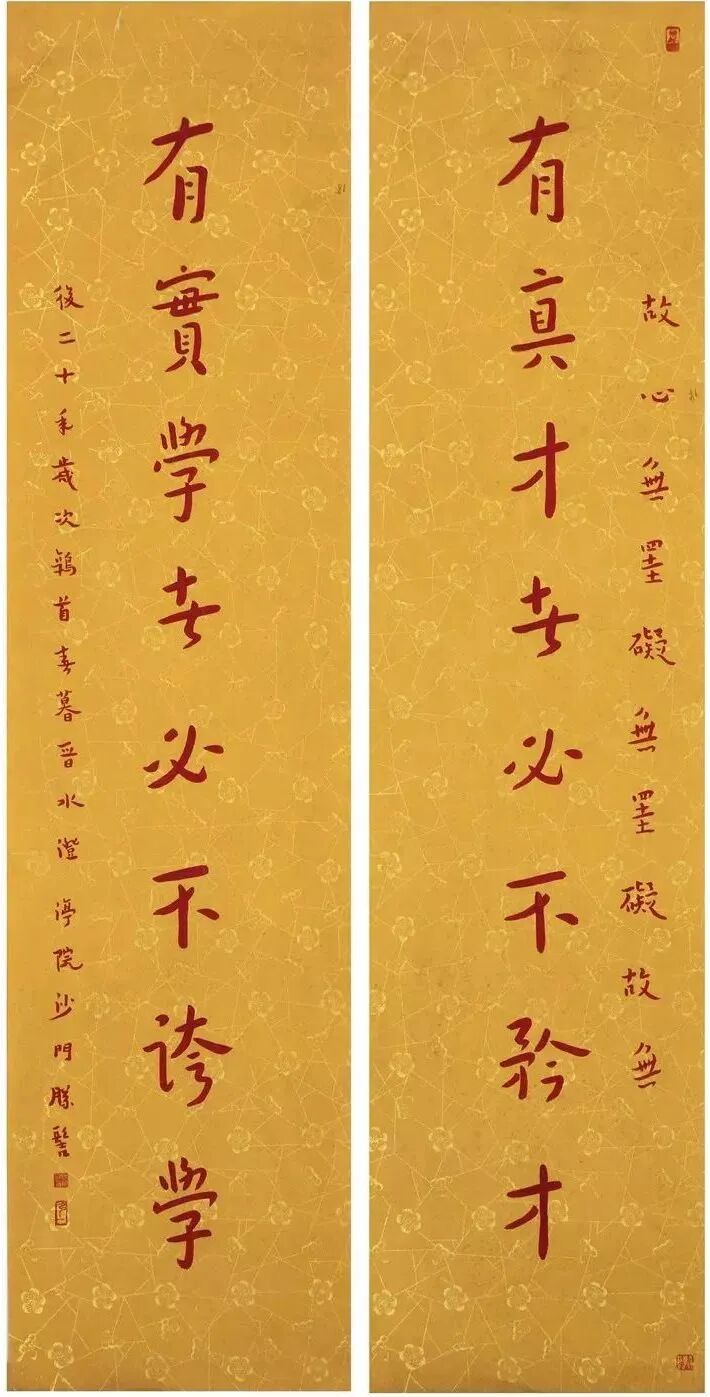 故心無罣礙無罣礙故無
有真才者必不矜才
有實學者必不誇學
後二十秊歲次鶉首春暮晉水澄渟院沙門勝髻